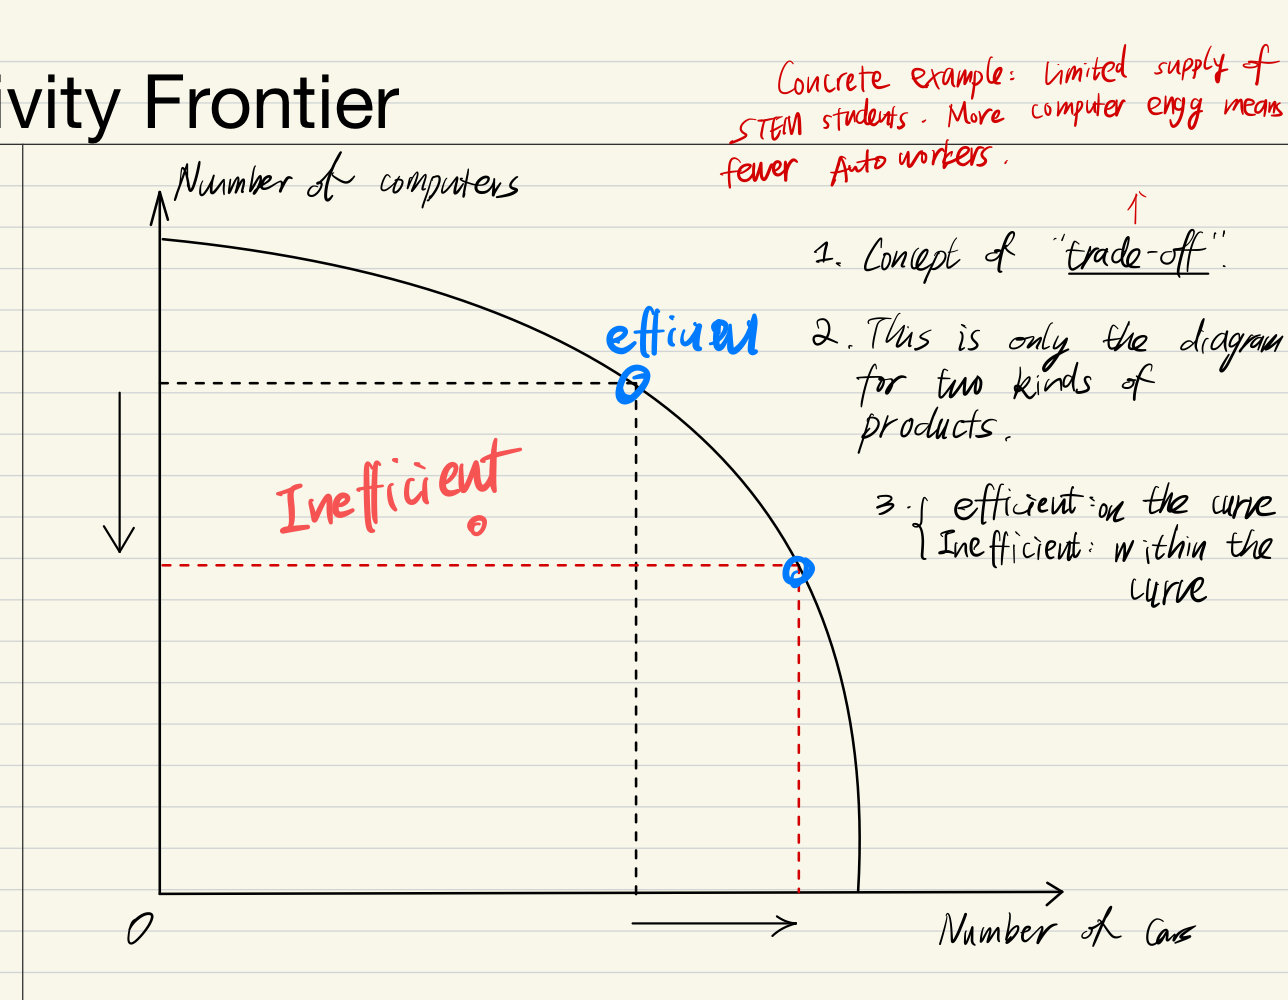 ivity Frontier
Concrete example: Limited supply of
STEM students. More computer engg means
fewer Auto workers.
↑
Number of computers
1. Concept of "trade-off".
efficient
2. This is only the diagram
for two kinds of
products.
Inefficient
3. { efficient: on the curve
Inefficient: within the
curve
0
Number of Cars